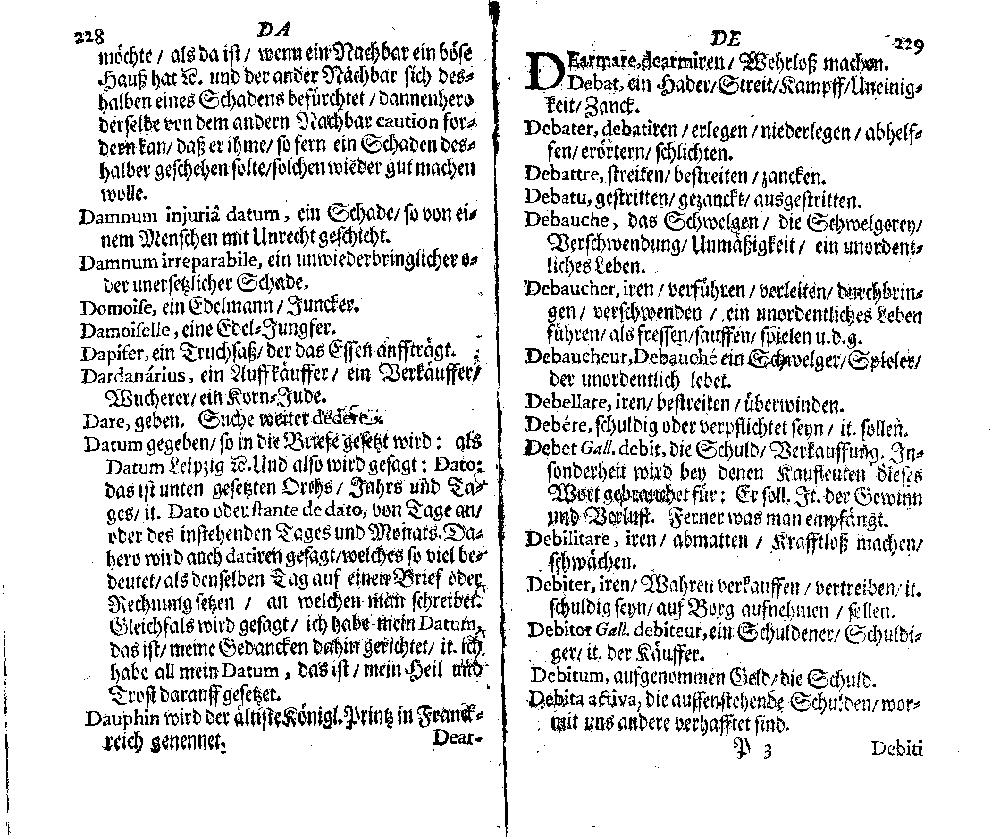 228 DA
möchte / als da ist / wenn ein Nachbar ein böse
Hauß hat ꝛc. und der ander Nachbar sich des-
halben eines Schadens befürchtet / dannenhero
derselbe von dem andern Nachbar caution for-
dern kan / daß er ihme / so fern ein Schaden des-
halber geschehen solte/solchen wieder gut machen
wolle.
Damnum injuriâ datum, ein Schade/ so von ei-
nem Menschen mit Unrecht geschicht.
Damnum irreparabile, ein unwiederbringlicher o-
der unersetzlicher Schade.
Domoise, ein Edelmann / Juncker.
Damoiselle, eine Edel-Jungfer.
Dapifer, ein Truchsaß/ der das Essen auffträgt.
Dardanárius, ein Auffkäuffer/ ein Verkäuffer/
Wucherer/ ein Korn-Jude.
Dare, geben. Suche weiter dedere.
Datum gegeben/ so in die Briefe gesetzt wird: als
Datum Leipzig ꝛc. Und also wird gesagt: Dato:
das ist unten gesetzten Orths/ Jahrs und Ta-
ges/ it. Dato oder stante de dato, von Tage an/
oder des instehenden Tages und Monats. Da-
hero wird auch datiren gesagt/welches so viel be-
deutet/als denselben Tag auf einen Brief oder
Rechnung setzen / an welchen man schreibet.
Gleichfals wird gesagt/ ich habe mein Datum,
das ist/ meine Gedancken dahin gerichtet/ it. ich
habe all mein Datum, das ist/ mein Heil und
Trost darauff gesetzet.
Dauphin wird der ältiste Königl. Printz in Franck-
reich genennet.
Dear-
DE 229
DEarmare, dearmiren/ Wehrloß machen.
Debat, ein Hader/ Streit/ Kampff/ Uneinig-
keit/ Zanck.
Debater, debatiren/ erlegen/ niederlegen/ abhelf-
fen/ erörtern/ schlichten.
Debattre, streiten/ bestreiten / zancken.
Debatu, gestritten/ gezanckt/ ausgestritten.
Debauche, das Schwelgen/ die Schwelgerey/
Verschwendung/ Unmäßigkeit/ ein unordent-
liches Leben.
Debaucher, iren/ verführen/ verleiten/ durchbrin-
gen/ verschwenden / ein unordentliches Leben
führen/ als fressen/sauffen/ spielen u.d.g.
Debaucheur, Debauché ein Schwelger/Spieler/
der unordentlich lebet.
Debellare, iren/ bestreiten / überwinden.
Debére, schuldig oder verpflichtet seyn/ it. sollen.
Debet Gall. debit, die Schuld/ Verkauffung. In-
sonderheit wird bey denen Kauffleuten dieses
Wort gebrauchet für: Er soll. It. der Gewinn
und Verlust. Ferner was man empfängt.
Debilitare, iren/ abmatten / Krafftloß machen/
schwächen.
Debiter, iren/ Wahren verkauffen/ vertreiben/ it.
schuldig seyn/ auf Borg aufnehmen / sollen.
Debitor Gall. debiteur, ein Schuldener/ Schuldi-
ger/ it. der Käuffer.
Debitum, aufgenommen Geld/ die Schuld.
Debita activa, die aussenstehende Schulden/ wor-
mit uns andere verhafftet sind.
P 3 Debiti